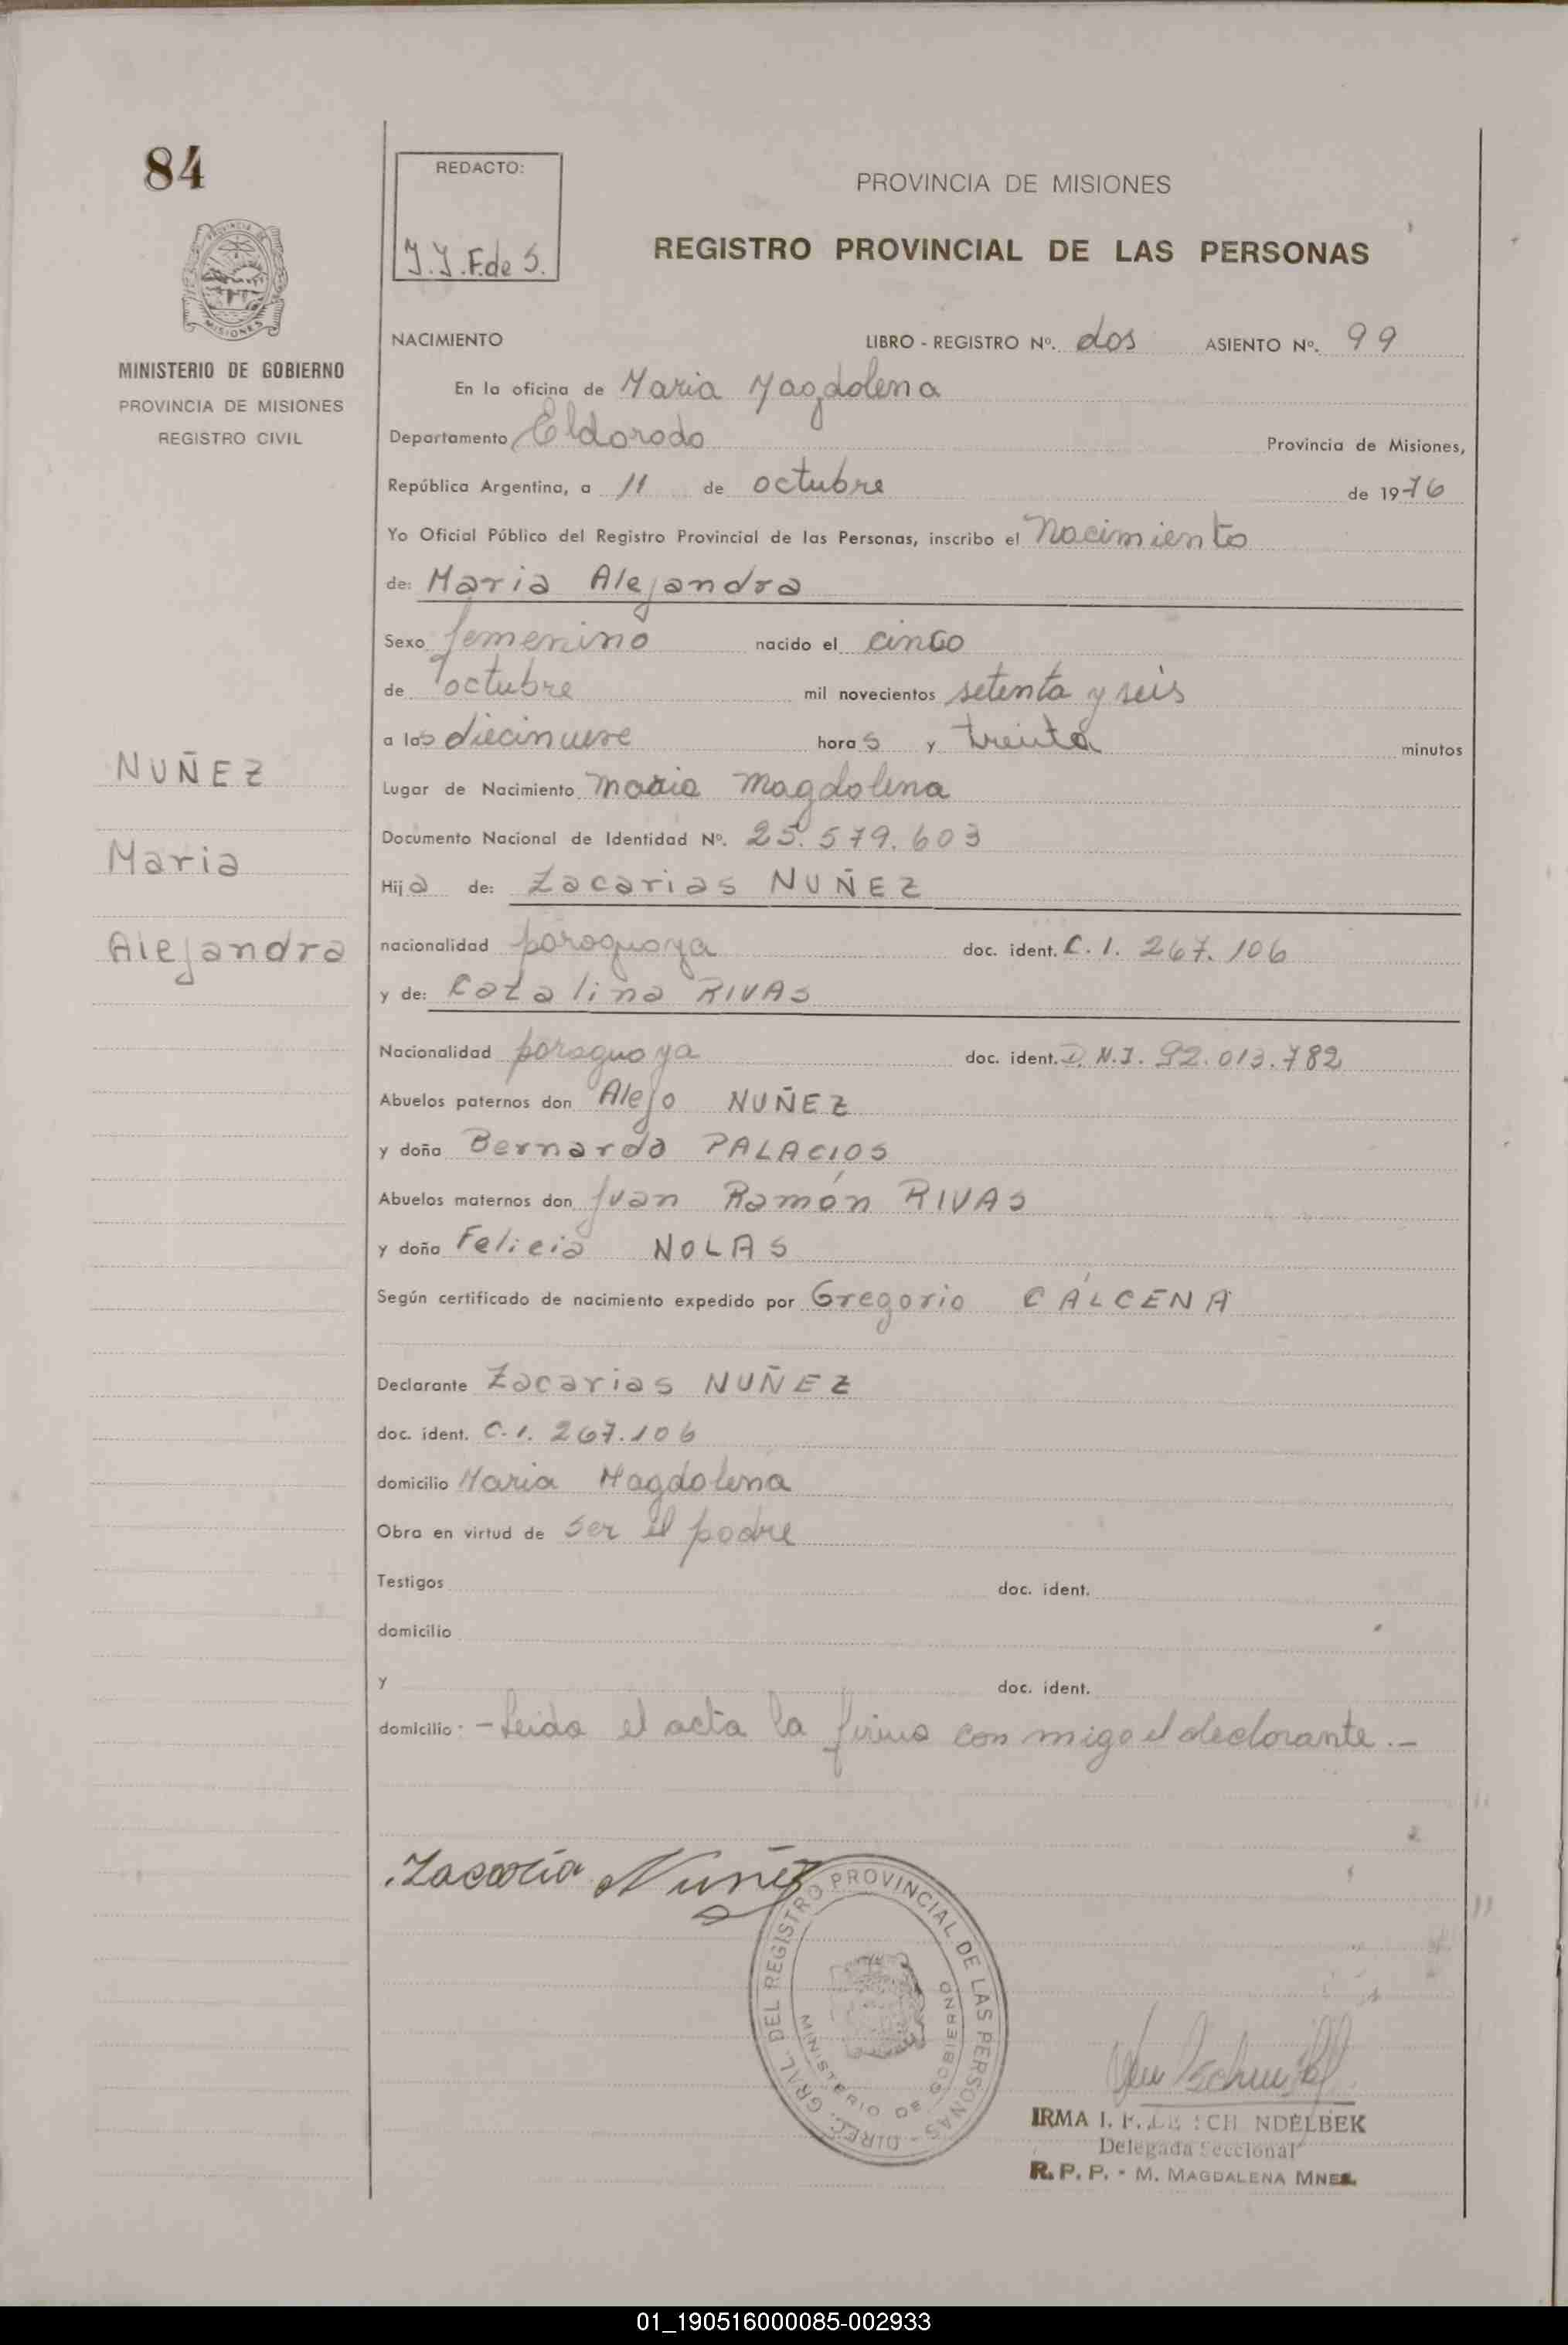 84
REDACTO:
J.J.F.de S.
PROVINCIA DE MISIONES
REGISTRO PROVINCIAL DE LAS PERSONAS
MISIONES
MINISTERIO DE GOBIERNO
PROVINCIA DE MISIONES
REGISTRO CIVIL
NACIMIENTO LIBRO - REGISTRO Nº. dos ASIENTO Nº. 99
En la oficina de Maria Magdalena
Departamento Eldorado Provincia de Misiones,
República Argentina, a 11 de octubre de 1976
Yo Oficial Público del Registro Provincial de las Personas, inscribo el Nacimiento
de: Maria Alejandra
Sexo femenino nacido el cinco
de octubre mil novecientos setenta y seis
a las diecinueve horas y treinta minutos
NUÑEZ
Lugar de Nacimiento Maria Magdalena
Documento Nacional de Identidad Nº. 25.579.603
Maria
Hija de: Zacarias NUÑEZ
Alejandra
nacionalidad paraguaya doc. ident. C.I. 267.106
y de: Catalina RIVAS
Nacionalidad paraguaya doc. ident. D.N.I. 92.013.782
Abuelos paternos don Alejo NUÑEZ
y doña Bernarda PALACIOS
Abuelos maternos don Juan Ramón RIVAS
y doña Felicia NOLAS
Según certificado de nacimiento expedido por Gregorio CÁLCENA
Declarante Zacarias NUÑEZ
doc. ident. C.I. 267.106
domicilio Maria Magdalena
Obra en virtud de ser el padre
Testigos doc. ident.
domicilio
y doc. ident.
domicilio: - Leida el acta la firma con migo el declarante.-
Zacaria Nuñez
DIREC. GRAL. DEL REGISTRO PROVINCIAL DE LAS PERSONAS -
MINISTERIO DE GOBIERNO
IRMA I. F. DE NDELBEK
Delegada Seccional
R. P. P. - M. MAGDALENA MNES.
01_190516000085-002933